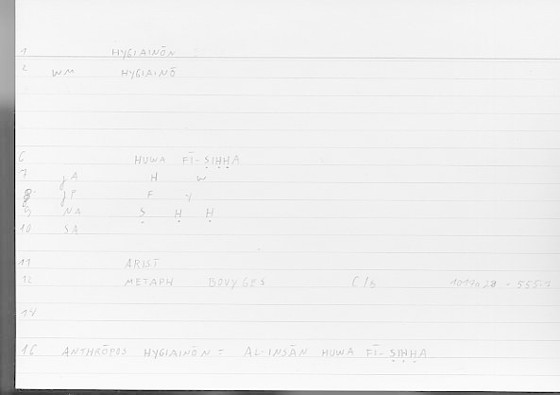 1 HYGIAINŌN
2 WM HYGIAINŌ
6 HUWA FĪ-ṢIḤḤA
7 JA H W
8 JP F Y
9 NA Ṣ Ḥ Ḥ
10 SA
11 ARIST
12 METAPH BOUYGES C/S 1017a28 - 555.7
14
16 ANTHRŌPOS HYGIAINŌN = AL-INSĀN HUWA FĪ-ṢIḤḤA